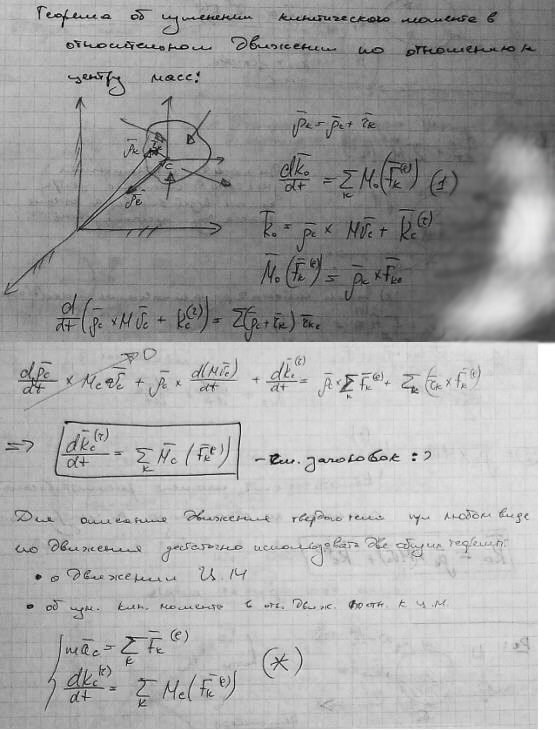 Теорема об изменении кинетического момента в
относительном движении по отношению к
центру масс:
ρ̄k = ρ̄c + r̄k
dk̄o/dt = Σk M̄o(F̄k^(e)) (1)
k̄o = ρ̄c × Mv̄c + k̄c^(r)
M̄o(F̄k^(e)) = ρ̄k × F̄ke
ρ̄k r̄k C
v̄c
d/dt(ρ̄c × Mv̄c + k̄c^(r)) = Σ(ρ̄c + r̄k) F̄ke
dρ̄c/dt × Mc v̄c → 0 + ρ̄c × d(Mv̄c)/dt + dk̄c^(r)/dt = ρ̄c × Σk F̄k^(e) + Σk(r̄k × F̄k^(e))
⇒ dk̄c^(r)/dt = Σk M̄c(F̄k^(e)) - см. заголовок :)
Для описания движения твердого тела при любом виде
его движения достаточно использовать две общих теоремы:
• о движении Ц.М
• об изм. кин. момента в от. движ. по отн. к ц.м.
māc = Σk F̄k^(e)
(*)
dk̄c^(r)/dt = Σk Mc(F̄k^(e))